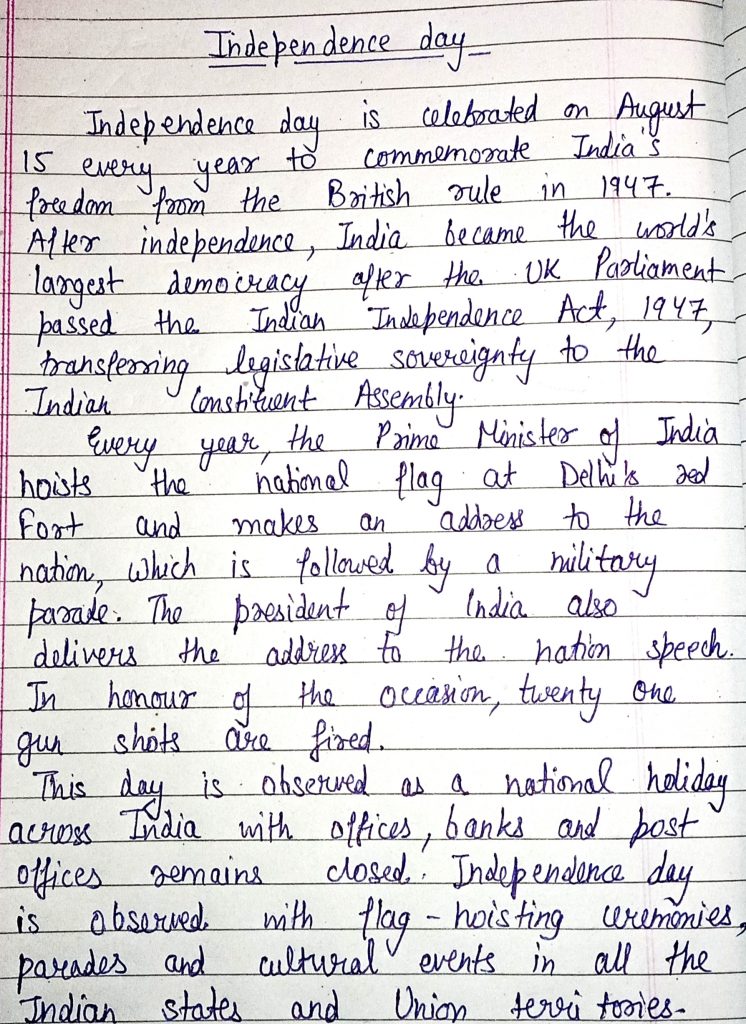 Independence day
Independence day is celebrated on August
15 every year to commemorate India's
freedom from the British rule in 1947.
After independence, India became the world's
largest democracy after the UK Parliament
passed the Indian Independence Act, 1947,
transferring legislative sovereignty to the
Indian Constituent Assembly.
Every year, the Prime Minister of India
hoists the national flag at Delhi's red
Fort and makes an address to the
nation, which is followed by a military
parade. The president of India also
delivers the address to the nation speech.
In honour of the occasion, twenty one
gun shots are fired.
This day is observed as a national holiday
across India with offices, banks and post
offices remains closed. Independence day
is observed with flag-hoisting ceremonies,
parades and cultural events in all the
Indian states and Union territories-